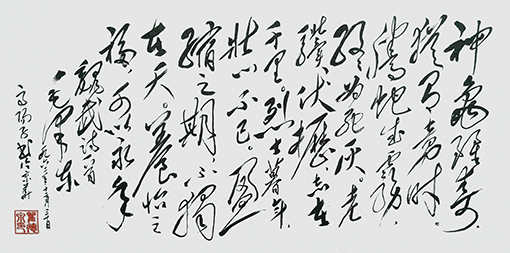 神龜雖壽，
猶有竟時，
騰蛇成霧，
終為死灰。老
驥伏櫪，志在
千里。烈士暮年，
壯心不已。盈
縮之期，不獨
在天。養怡之
福，可以永年
魏武詩一首
毛澤東